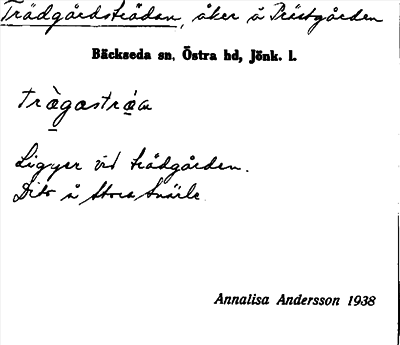 Trädgårdsträdan, åker å Prästgården
Bäckseda sn, Östra hd, Jönk. l.
Trägasträa
Ligger vid trädgården.
Dito å Stora
Annalisa Andersson 1938